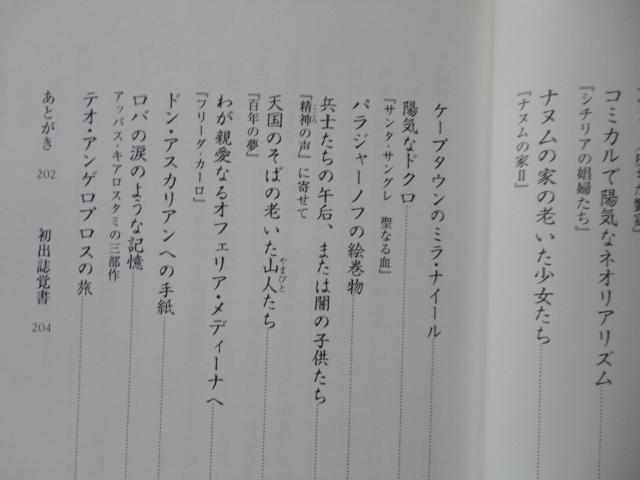 コミカルで陽気なネオリアリズム
『シチリアの娼婦たち』
ナヌムの家の老いた少女たち
『ナヌムの家Ⅱ』
ケープタウンのミラ・ナイール
陽気なドクロ
『サンタ・サングレ 聖なる血』
パラジャーノフの絵巻物
兵士たちの午后、または闇の子供たち
『精神の声』に寄せて
こころ
天国のそばの老いた山人たち
やまびと
『百年の夢』
わが親愛なるオフェリア・メディーナへ
『フリーダ・カーロ』
ドン・アスカリアンへの手紙
ロバの涙のような記憶
アッバス・キアロスタミの三部作
テオ・アンゲロプロスの旅
あとがき 202 初出誌覚書 204